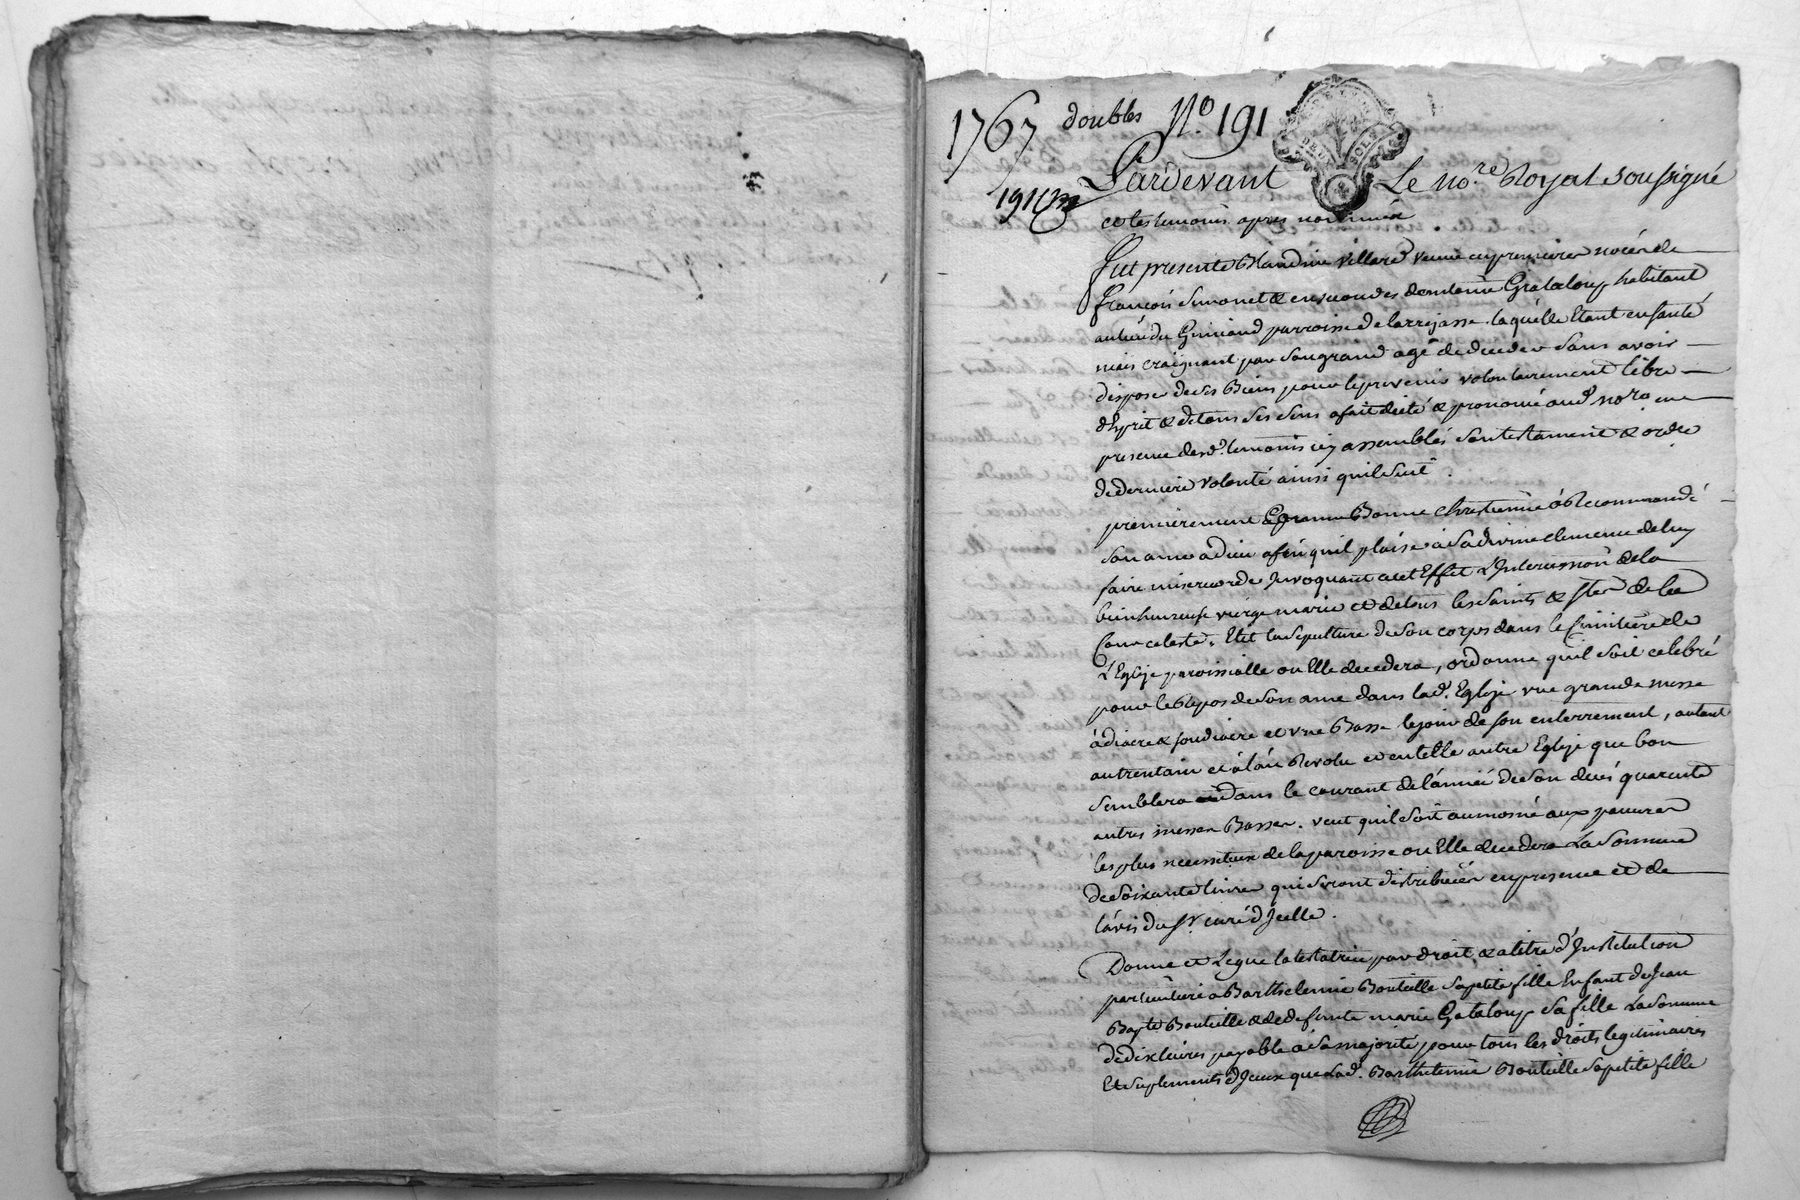 1767 doubles N.o 191
191
DEUX SOLS
Pardevant Le no.re Royal soussigné
et les temoins apres nommés
fut presente Claudine Villard veuve en premieres noces de
françois Simonet & en secondes d'antoine Grataloup habitant
au lieu du Gimiand parroisse de larrajasse, laquelle Etant en santé
mais craignant par son grand age de deceder sans avoir
disposé de ses Biens pour le prevenir volontairement libre
d'Esprit & de tous ses sens a fait dicté & prononcé aud. no.re en
presence desd. temoins icy assemblés son testament & ordre
de derniere volonté ainsi quil suit.
premierement Comme Bonne chrestienne a Recommandé
son ame a dieu afin qu'il plaise a sa divine clemence de luy
faire misericorde Invoquant a cet Effet L'Intercession de la
bienheureuse vierge marie et de tous les saints & stes de la
Cour celeste. Elit la sepulture de son corps dans le Cimitiere de
L'Eglise paroissialle ou Elle decedera, ordonne qu'il soit celebré
pour le Repos de son ame dans lad. Eglise une grande messe
à diacre & soudiacre et une Basse le jour de son enterrement, autant
au trentain et à l'an Revolu et en telle autre Eglise que bon
semblera dans le courant de l'année de son decés quarente
autres messes Basses. veut qu'il soit aumosné aux pauvres
les plus necessiteux de la paroisse ou Elle decedera La somme
de soixante livres qui seront distribuées en presence et de
l'avis du sr. curé d'Icelle.
Donne et Legue la testatrice par droit & a titre d'Institution
particuliere a Barthelemie Bouteille sa petite fille Enfant de Jean
Bapte Bouteille & de defunte marie Grataloup sa fille La somme
de dix livres payable a sa majorité pour tous les droits legitimaires
Et suplements d'Iceux que lad. Barthelemie Bouteille sa petite fille